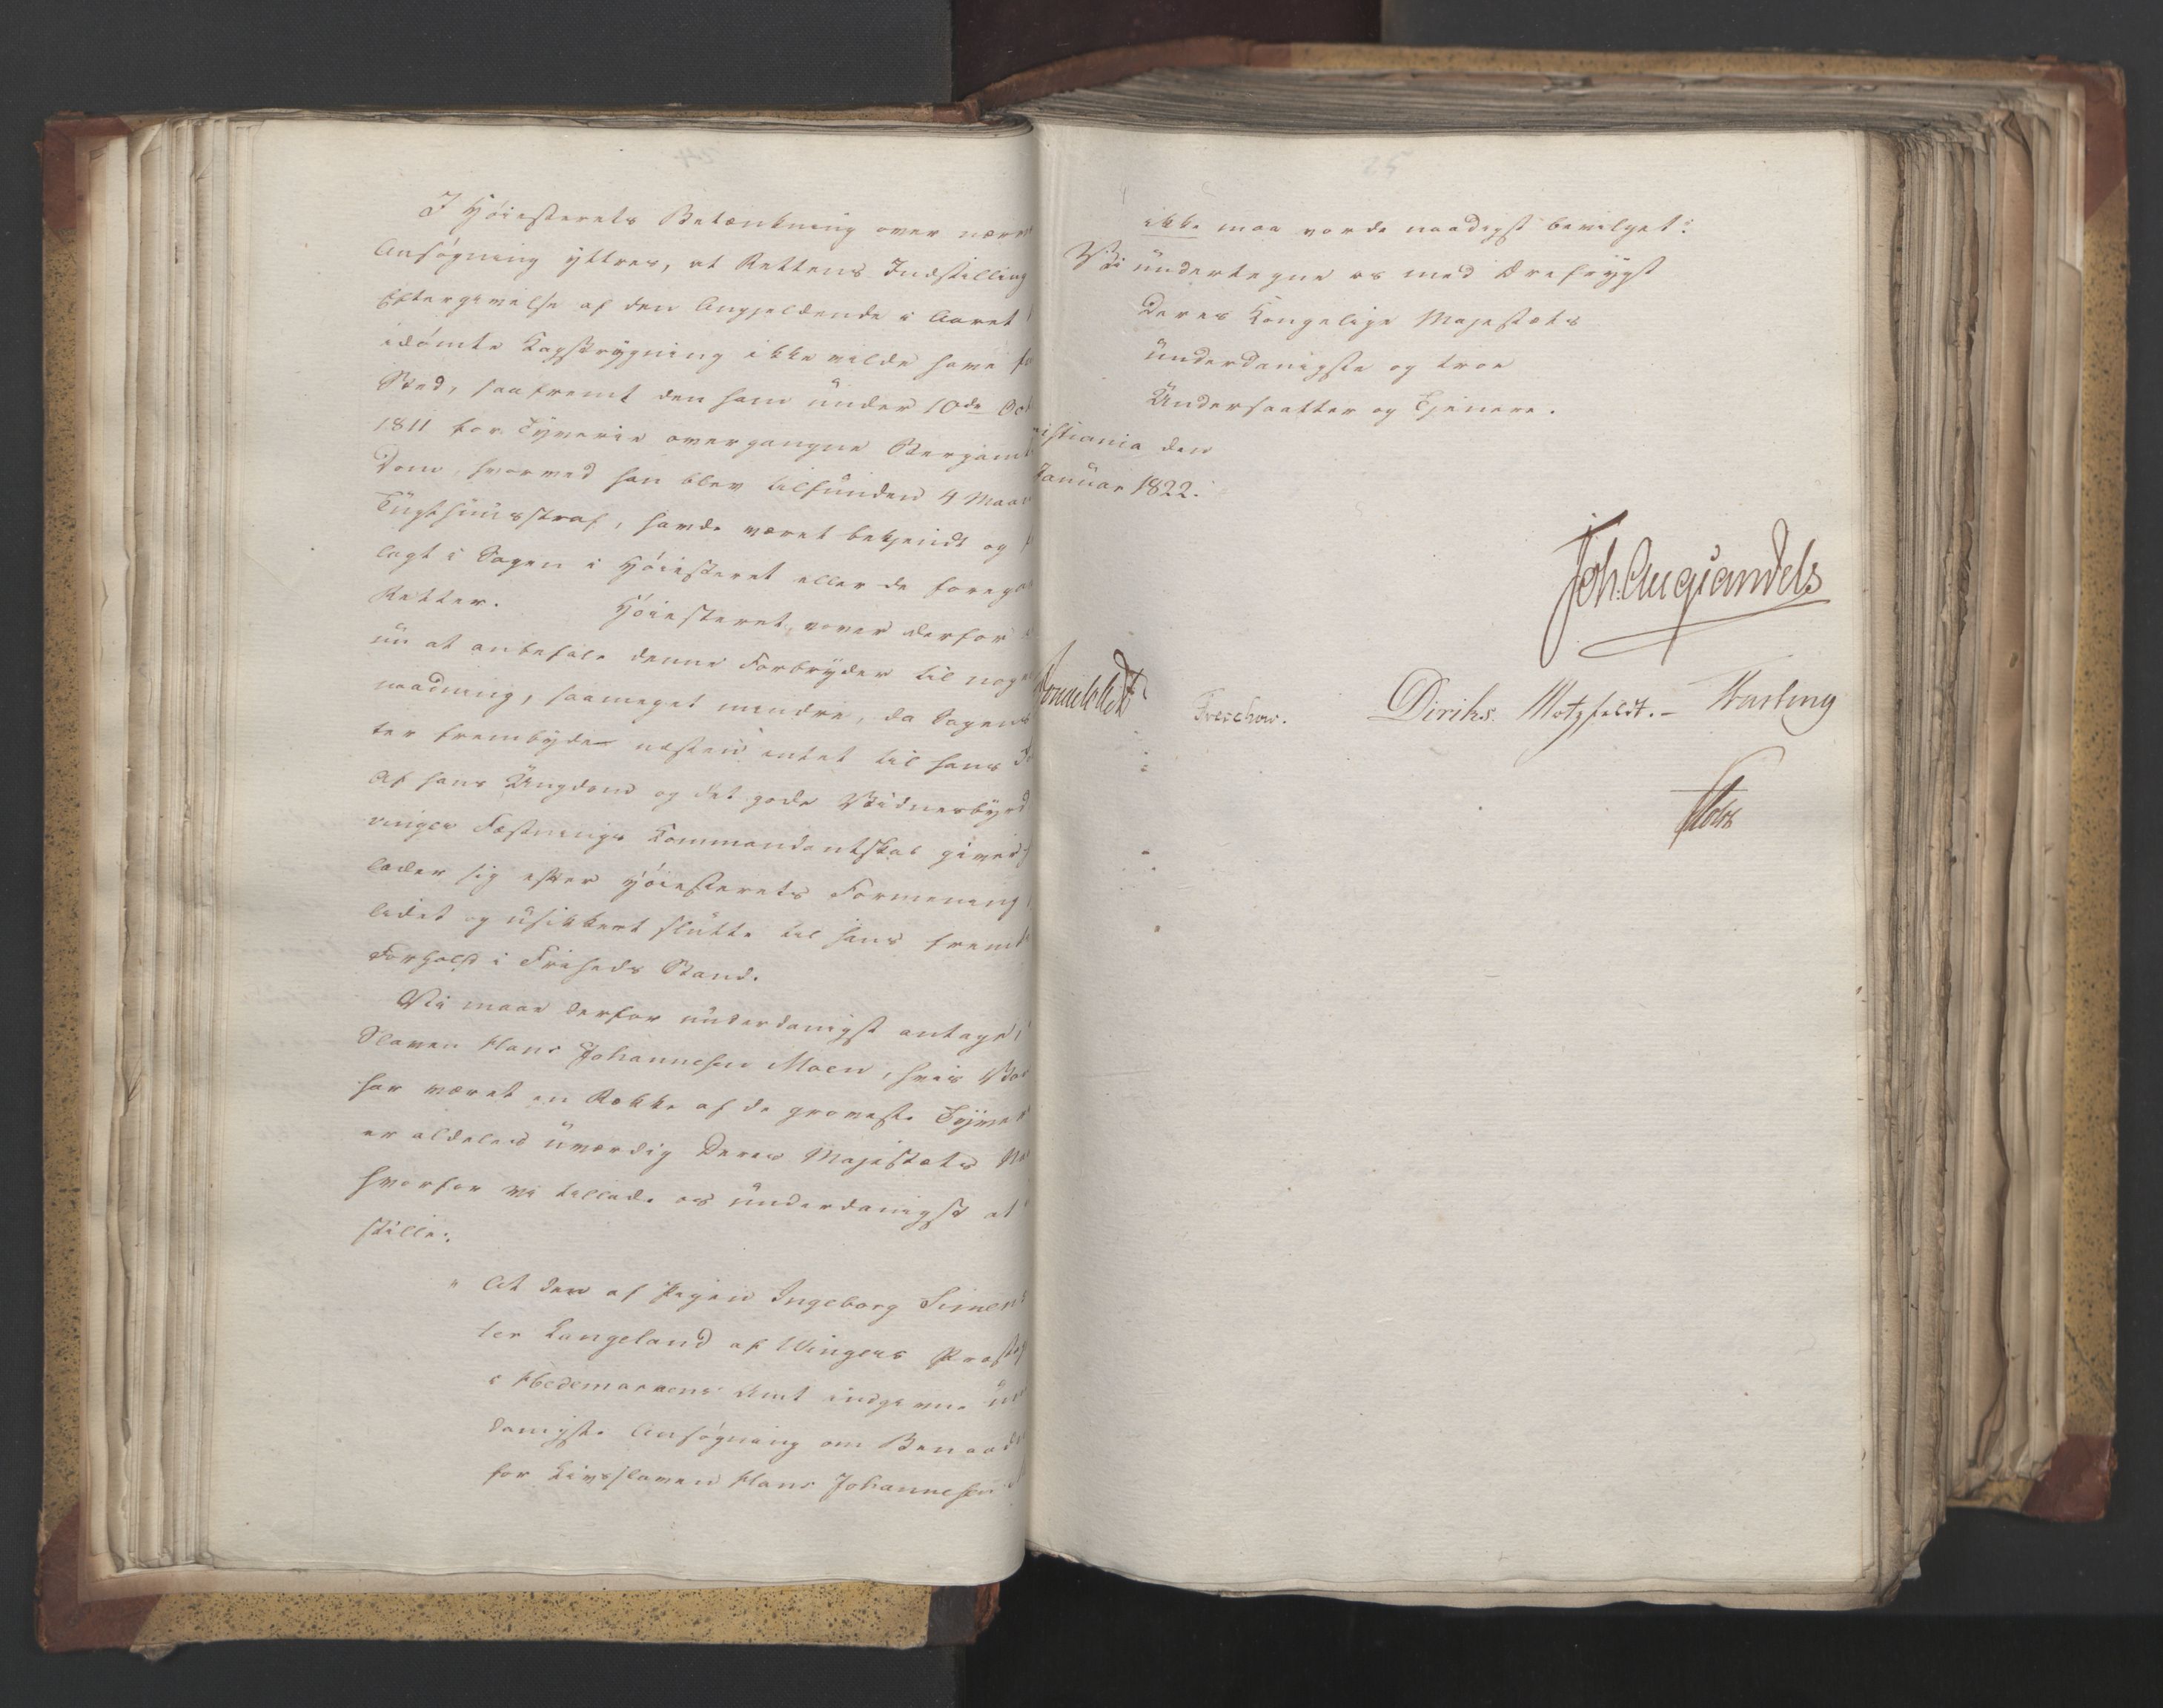 I Høiesterets Betænkning over nærv
Ansøgning yttres, at Rettens Indstilling
Eftergivelse af den Angjeldende i Aaret
idømte Kagstrygning ikke vilde have fu
Sted, saafremt den ham under 10de Oct
1811 for Tyverie overgangne Steviemt
Dom, hvorved han blev tilfunden 4 Maan
Tugthuusstraf, havde været bekjendt og
lagt i Sagen i Høiesteret eller de foregaa
Retter. Høiesteret vover derfor
nu at anbefale denne Forbryder til noge
naadning, saameget mindre, da Sagens
ter frembyder næsten intet til hans Fo
Af hans Ungdom og det gode Vidnesbyrd
vinger Fæstnings Kommandantskab giver
lader sig efter Høiesterets Formening
lidet og usikkert slutte til hans fremt
Forhold i Friheds Stand.
Vi maae derfor underdanigst antage,
Slaven Hans Johannesen Moen, hvis
har været en Række af de groveste Tyve
er aldeles uværdig Deres Majestæts Na
hvorfor vi tillade os underdanigst at
stille:
" At den af Pigen Ingeborg Simens
ter Kungeland af Wingers Præsteg
i Hedemarkens Amt indgivne un
danigste Ansøgning om Benaad
for Livsslaven Hans Johannesen
25
ikke maa vorde naadigst bevilget:
Vi undertegne os med Ærefrygt
Deres Kongelige Majestæts
underdanigste og troe
Undersaatter og Tjenere.
istiania den
Januar 1822.
Joh. Aug. Sandels
Sommerhielm
Treschow. Diriks. Motzfeldt. Fasting
Holst